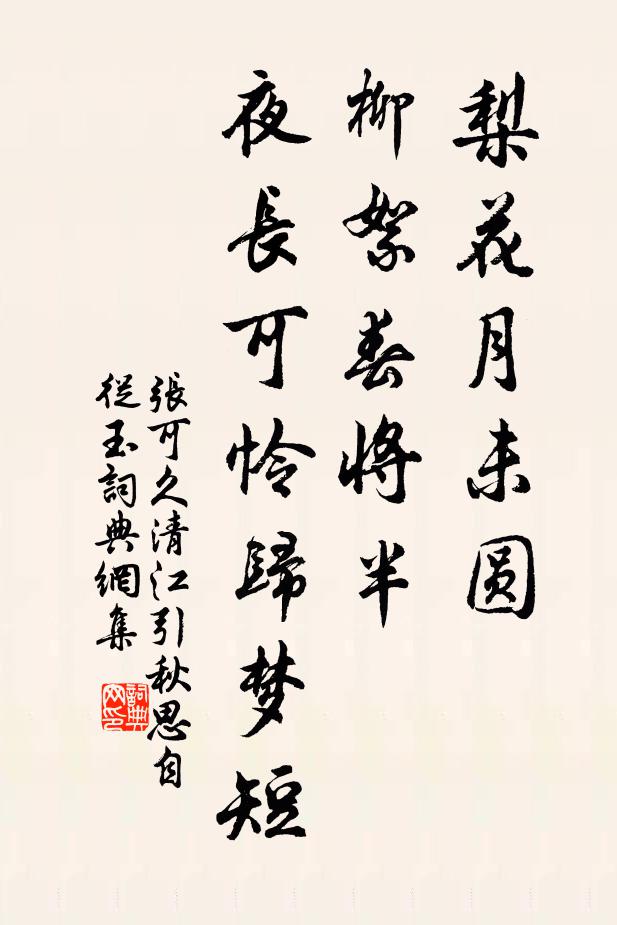 梨花月未圆
柳絮春将半
夜長可怜歸梦短
張可久清江引秋思自
從玉詞典網集
詞典网印